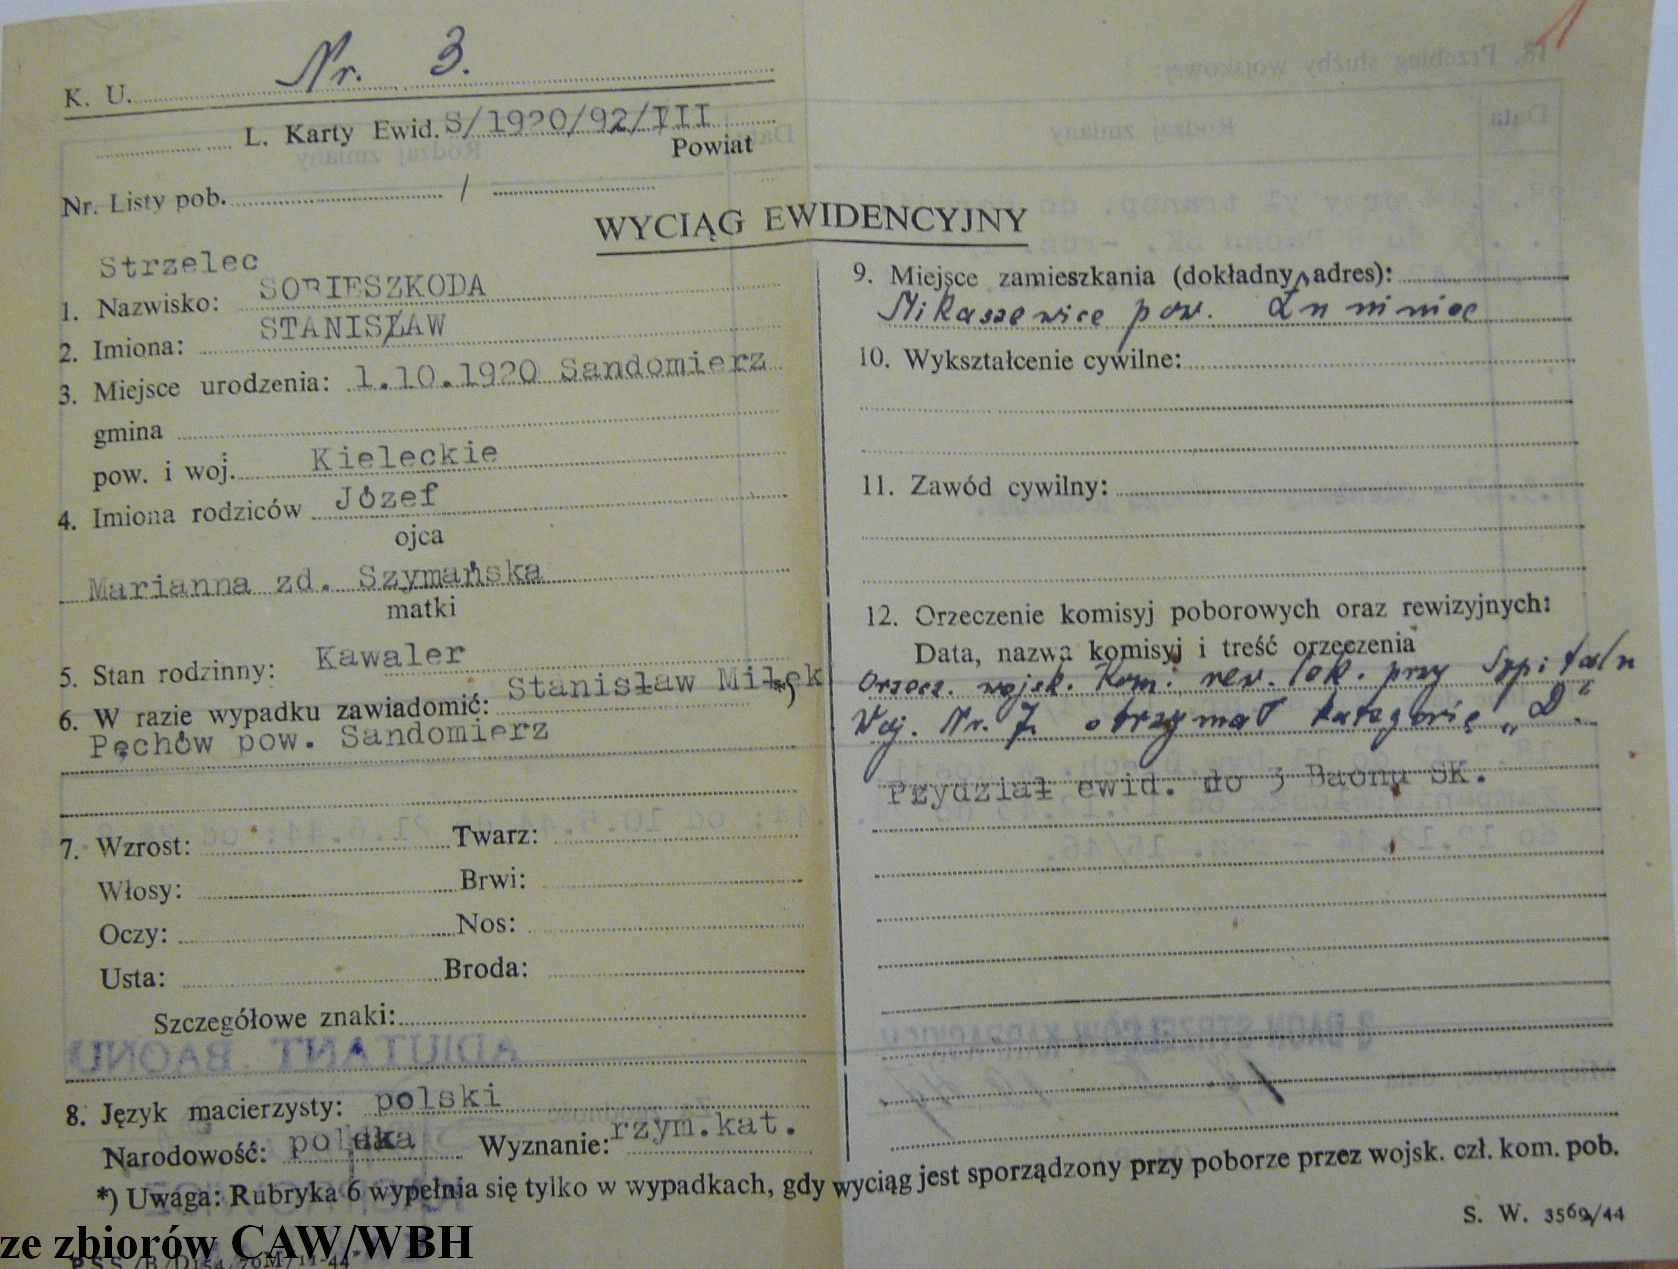 K. U. Nr. 3.
L. Karty Ewid. S/1920/92/III
Powiat
Nr. Listy pob. /
WYCIĄG EWIDENCYJNY
Strzelec
1. Nazwisko: SOBIESZKODA
2. Imiona: STANISŁAW
3. Miejsce urodzenia: 1.10.1920 Sandomierz
gmina
pow. i woj. Kieleckie
4. Imiona rodziców Józef
ojca
Marianna zd. Szymańska
matki
5. Stan rodzinny: Kawaler
6. W razie wypadku zawiadomić: *) Stanisław Miłek
Pęchów pow. Sandomierz
7. Wzrost: Twarz:
Włosy: Brwi:
Oczy: Nos:
Usta: Broda:
Szczegółowe znaki:
ADIUTANT BAONU
8. Język macierzysty: polski
Narodowość: polska Wyznanie: rzym.kat.
9. Miejsce zamieszkania (dokładny adres):
Mikaszewice pow. Łuniniec
10. Wykształcenie cywilne:
11. Zawód cywilny:
12. Orzeczenie komisyj poborowych oraz rewizyjnych:
Data, nazwa komisyj i treść orzeczenia
Orzecz. wojsk. Kom. rew. lek. przy Szpitalu
Woj. Nr. 7 otrzymał kategorię „D"
Przydział ewid. do 3 Baonu SK.
*) Uwaga: Rubryka 6 wypełnia się tylko w wypadkach, gdy wyciąg jest sporządzony przy poborze przez wojsk. czł. kom. pob.
S. W. 3569/44
ze zbiorów CAW/WBH